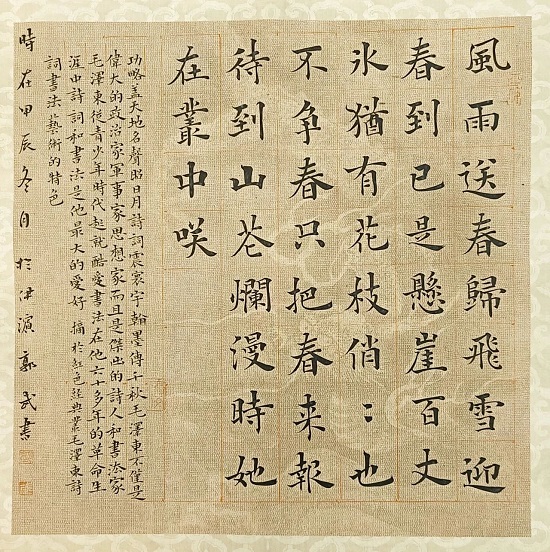 風雨送春歸飛雪迎
春到已是懸崖百丈
氷猶有花枝俏：也
不争春只把春来報
待到山芲爛漫時她
在叢中咲
功略盖天地名聲昭日月詩詞震寰宇翰墨傳千秋毛澤東不僅是
偉大的政治家軍事家思想家而且是傑出的詩人和書法家
毛澤東從青少年時代起就酷愛書法在他六十多年的革命生
涯中詩詞和書法是他最大的愛好 摘於紅色經典叢毛澤東詩
詞書法藝術的特色
時在甲辰冬月於津濱郭武書